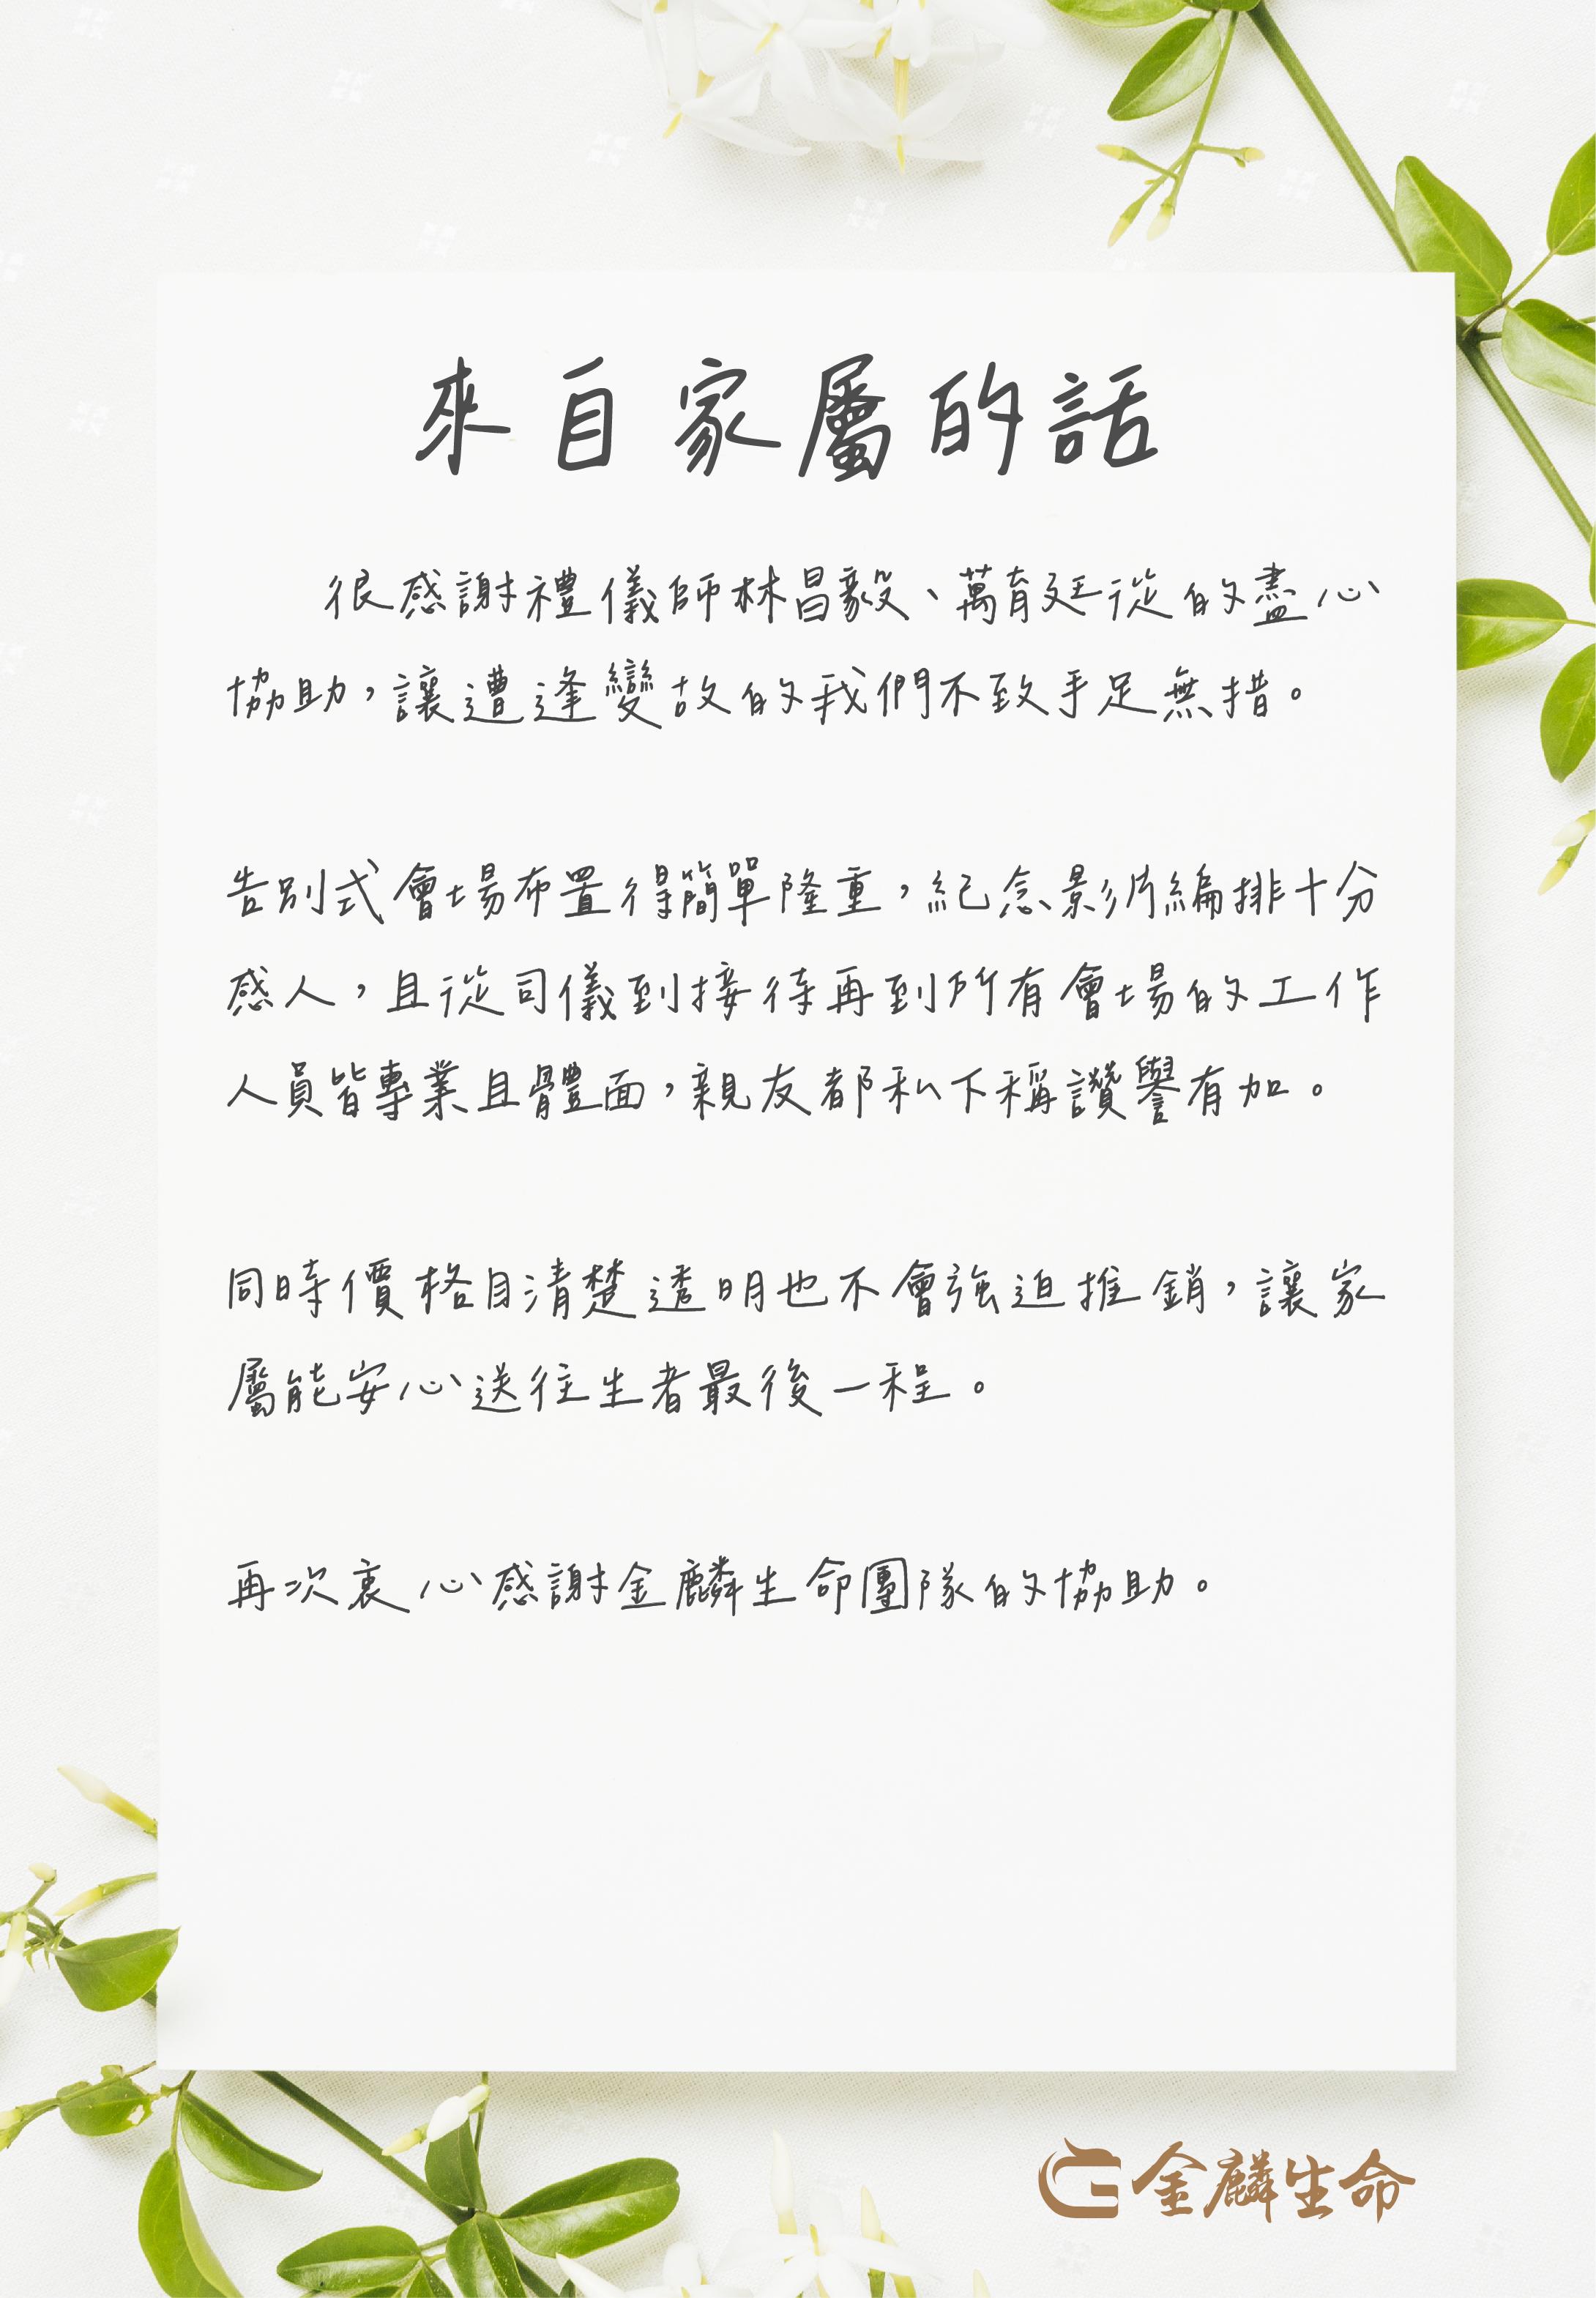 來自家屬的話
很感謝禮儀師林昌毅、萬育廷從的盡心
協助，讓遭逢變故的我們不致手足無措。
告別式會場布置得簡單隆重，紀念影片編排十分
感人，且從司儀到接待再到所有會場的工作
人員皆專業且體面，親友都私下稱讚譽有加。
同時價格目清楚透明也不會強迫推銷，讓家
屬能安心送往生者最後一程。
再次衷心感謝金麟生命團隊的協助。
金麟生命